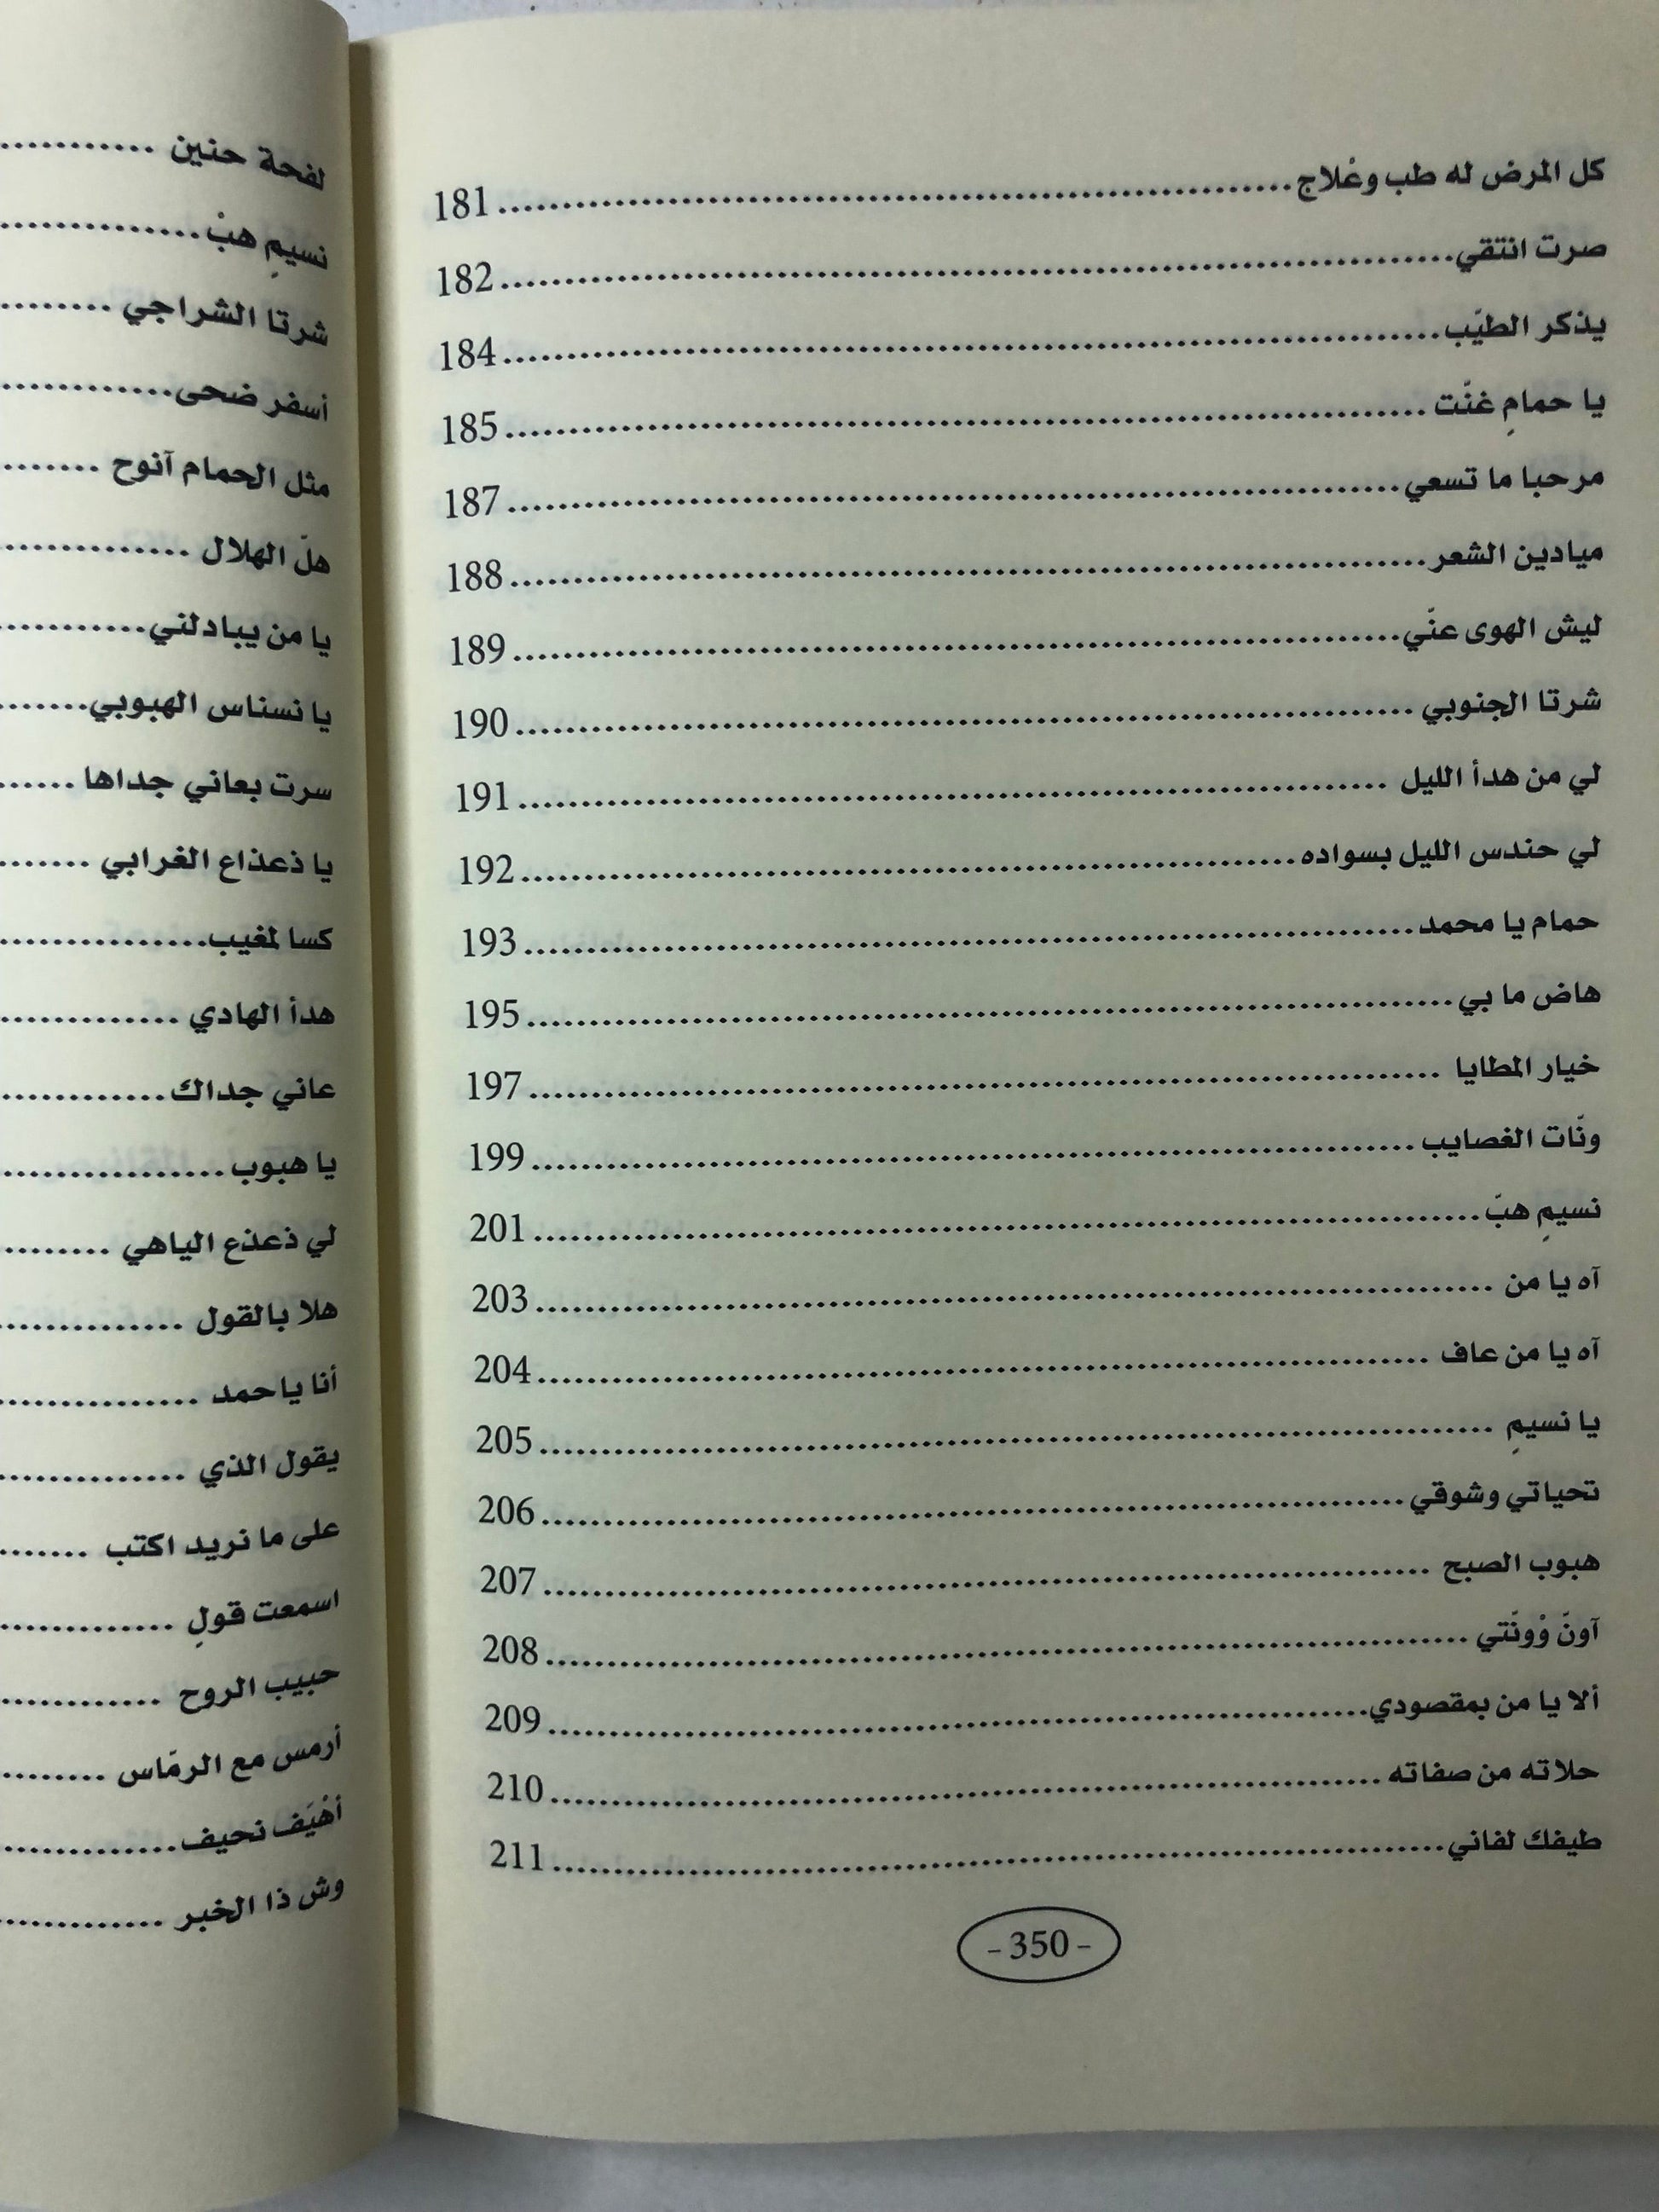 كل المرض له طب وعْلاج 181
صرت انتقي 182
يذكر الطيّب 184
يا حمامٍ غنّت 185
مرحبا ما تسعي 187
ميادين الشعر 188
ليش الهوى عنّي 189
شرتا الجنوبي 190
لي من هدأ الليل 191
لي حندس الليل بسواده 192
حمام يا محمد 193
هاض ما بي 195
خيار المطايا 197
ونّات الغصايب 199
نسيمٍ هبّ 201
آه يا من 203
آه يا من عاف 204
يا نسيمٍ 205
تحياتي وشوقي 206
هبوب الصبح 207
آونّ وْونّتي 208
ألا يا من بمقصودي 209
حلاته من صفاته 210
طيفك لفاني 211
- 350 -
لفحة حنين
نسيمٍ هبْ
شرتا الشراجي
أسفر ضحى
مثل الحمام آنوح
هلّ الهلال
يا من يبادلني
يا نسناس الهبوبي
سرت بعاني جداها
يا ذعذاع الغرابي
كسا لمغيب
هدأ الهادي
عاني جداك
يا هبوب
لي ذعذع الياهي
هلا بالقول
أنا ياحمد
يقول الذي
على ما نريد اكتب
اسمعت قولٍ
حبيب الروح
أرمس مع الرمّاس
أهْيَف نحيف
وش ذا الخبر